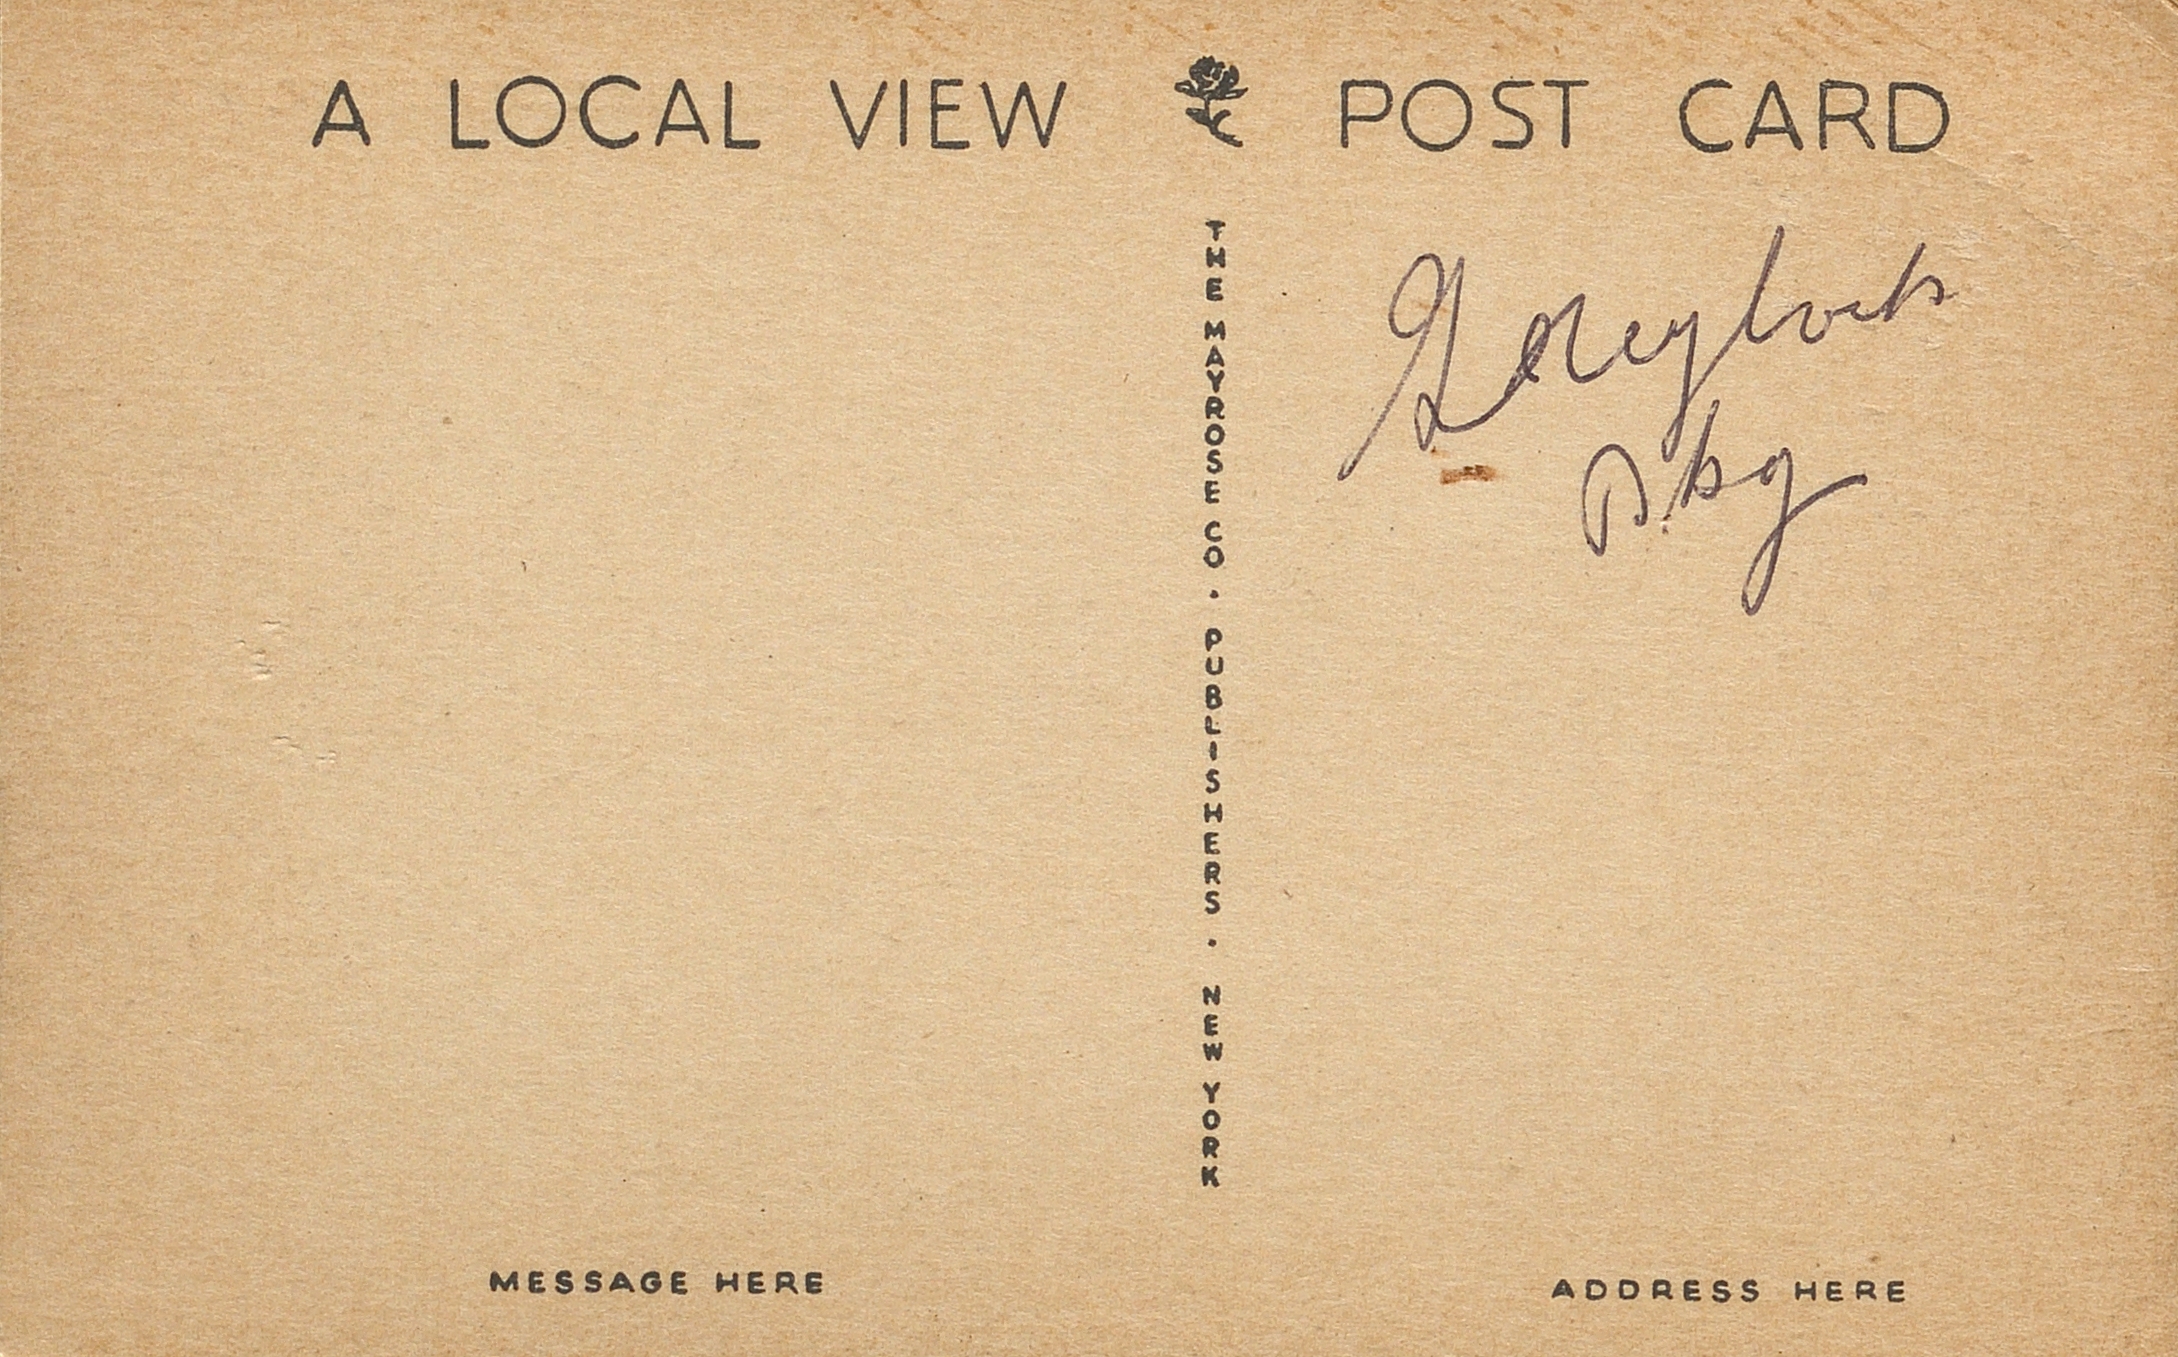 A LOCAL VIEW POST CARD
THE MAYROSE CO. PUBLISHERS. NEW YORK
Greylock
MESSAGE HERE
ADDRESS HERE